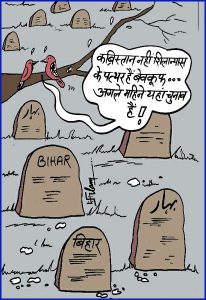 कब्रिस्तान नहीं शिलान्यास
के पत्थर हैं बेवकूफ...
अगले महिने यहां चुनाव
हैं !!
بہار
BIHAR
بہار
बिहार